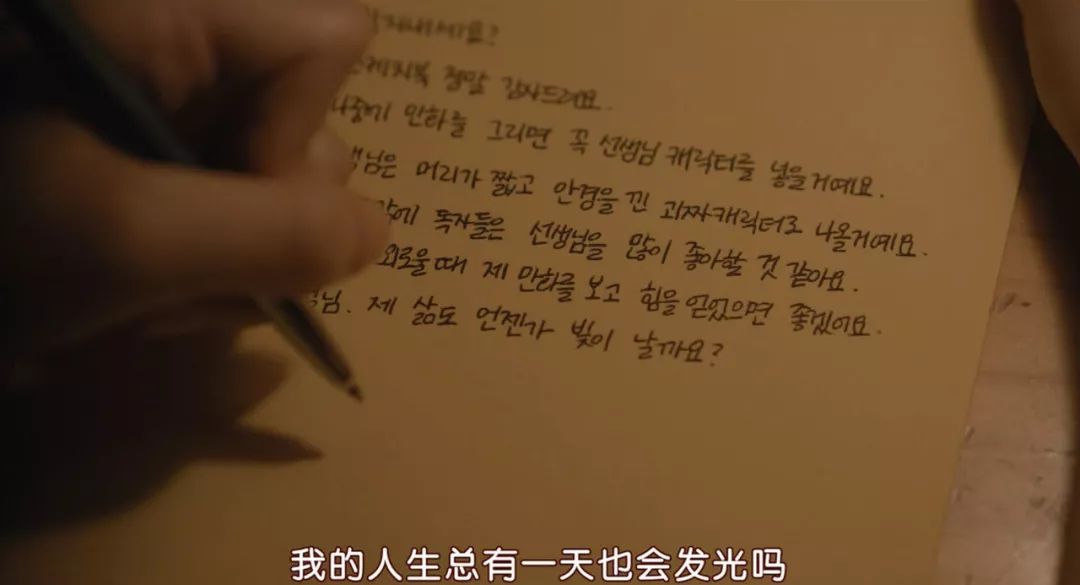 지내세요?
스케치북 정말 감사드려요.
나중에 만화를 그리면 꼭 선생님 캐릭터를 넣을거예요.
머리가 짧고 안경을 낀 괴짜캐릭터로 나올거예요.
독자들은 선생님을 많이 좋아할 것 같아요.
외로울때 제 만화를 보고 힘을 얻었으면 좋겠어요.
제 삶도 언젠가 빛이 날까요?
我的人生总有一天也会发光吗